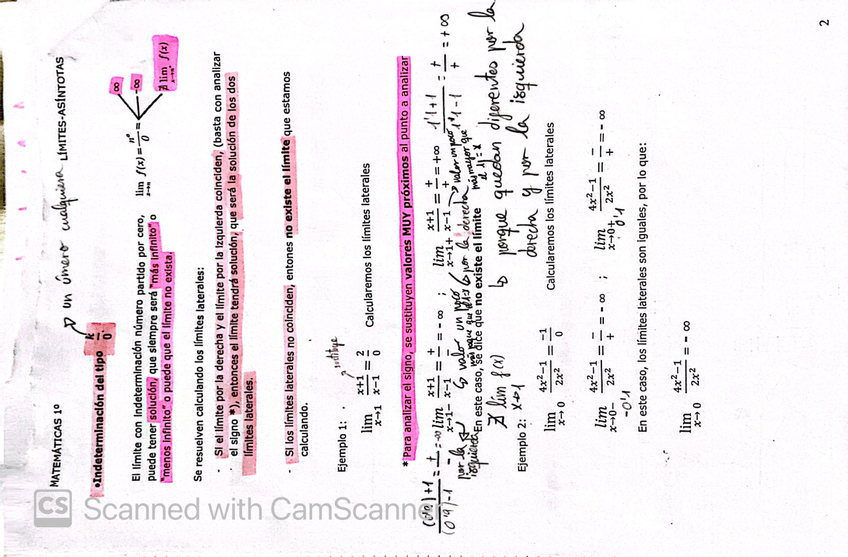 MATEMÁTICAS 1º LÍMITES-ASÍNTOTAS
un número cualquiera
•Indeterminación del tipo k/0.
El límite con indeterminación número partido por cero,
puede tener solución, que siempre será "más infinito" o
"menos infinito" o puede que el límite no exista.
lim x→n f(x) = nº/0 =
∞
-∞
∄ lim f(x)
Se resuelven calculando los límites laterales:
- Si el límite por la derecha y el límite por la izquierda coinciden, (basta con analizar
el signo *), entonces el límite tendrá solución, que será la solución de los dos
límites laterales.
- Si los límites laterales no coinciden, entones no existe el límite que estamos
calculando.
Ejemplo 1:
lim x→1 x+1/x−1 = 2/0 Calcularemos los límites laterales
* Para analizar el signo, se sustituyen valores MUY próximos al punto a analizar
(0'9)+1/(0'9)-1 = +/- = -∞ lim x→1− x+1/x−1 = +/− = −∞ ; lim x→1+ x+1/x−1 = +/+ = +∞ 1'1+1/1'1-1 = +/+ = +∞
por la izquierda
por la derecha
En este caso, se dice que no existe el límite
∄ lim x→1 f(x)
porque quedan diferentes por la
derecha y por la izquierda
Ejemplo 2:
lim x→0 4x²−1/2x² = −1/0 Calcularemos los límites laterales
lim x→0− 4x²−1/2x² = −/+ = −∞ ; lim x→0+ 4x²−1/2x² = −/+ = −∞
-0'1 0'1
En este caso, los límites laterales son iguales, por lo que:
lim x→0 4x²−1/2x² = −∞
2
CS Scanned with CamScanner